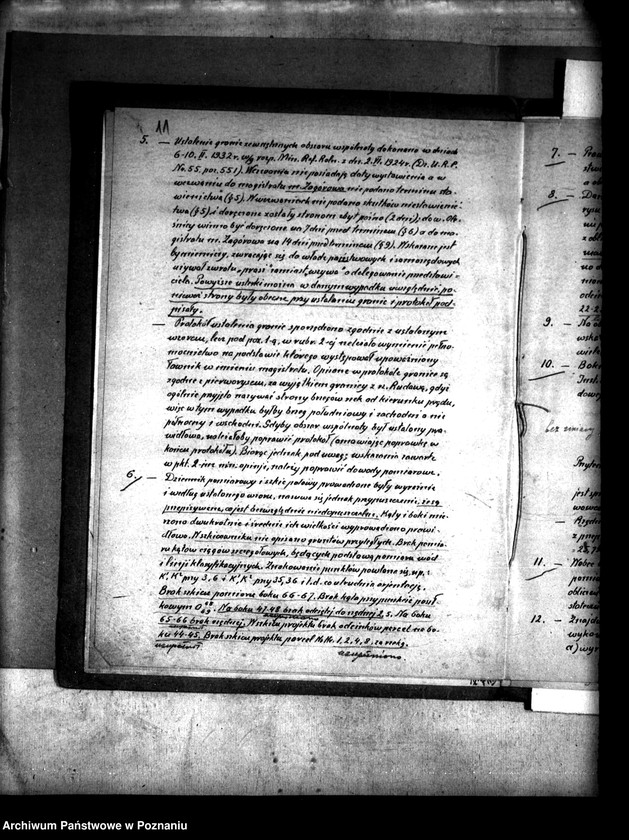 11
5. — Ustalenie granic zewnętrznych obszaru wspólnoty dokonano w dniach
6-10. II. 1932 r. wg. rozp. Min. Ref. Roln. z dn. 2. VI. 1924 r. (Dz. U. R. P.
No. 55, poz. 551). Wezwania nie posiadają daty wystawienia a w
wezwaniu do magistratu m. Zagórowa nie podano terminu sta-
wiennictwa (§ 5). W wezwaniach nie podano skutków niestawiennic-
twa (§ 5), i doręczone zostały stronom zbyt późno (2 dni);
winno być doręczone na 7 dni przed terminem (§ 6) a do ma-
gistratu m. Zagórowa na 14 dni przed terminem (§ 9). Wskazane jest
by mierniczy, zwracając się do władz państwowych i samorządowych
używał zwrotu „prosi" zamiast „wzywa" o delegowanie przedstawi-
ciela. Powyższe usterki można w danym wypadku uwzględnić, po-
nieważ strony były obecne przy ustaleniu granic i protokół pod-
pisały.
— Protokół ustalenia granic sporządzono zgodnie z ustalonym
wzorem, lecz pod poz. 1-ą, w rubr. 2-ej należało wymienić pełno-
mocnictwo na podstawie którego występował upoważniony
ławnik w imieniu magistratu. Opisane w protokóle granice są
zgodne z pierworysem, za wyjątkiem granicy z rz. gdyż
ogólnie przyjęto nazywać strony brzegów rzek od kierunku prądu,
więc w tym wypadku byłby brzeg południowy i zachodni a nie
północny i wschodni. Gdyby obszar wspólnoty był ustalony pra-
widłowo, należałoby poprawić protokół (omawiając poprawkę w
końcu protokółu). Biorąc jednak pod uwagę wskazania zawarte
w pkt. 2-im n/n. opinji, należy poprawić dowody pomiarowe.
6. — Dziennik pomiarowy i szkic polowy prowadzone były wyraźnie
i według ustalonego wzoru, nasuwa się jednak przypuszczenie, że są
przepisywane, co jest bezwzględnie niedopuszczalne. Kąty i boki mie-
rzono dwukrotnie i średnie ich wielkości wyprowadzono prawi-
dłowo. W szkicowniku nie opisano gruntów przyległych. Brak pomia-
ru kątów ciągów szczegółowych, będących podstawą pomiaru wód
i linji klasyfikacyjnych. Znakowanie punktów powtarza się, np.:
K', K² przy 3, 6 i K', K² przy 35, 36 i t.d. co utrudnia orjentację.
Brak szkicu pomiarów boku 66-67. Brak kąta przy punkcie posił-
kowym Na boku 47-48 brak odciętej do rzędnej 2,5. Na boku
65-66 brak rzędnej. W szkicu projektu brak odcinków parcel na bo-
ku 44-45. Brak szkicu projektu parcel № № 1, 2, 4, 8, za rzeką.
uzupełnić
uzupełniono
7. —
8. —
22-2
9. — Na
10. — Bok
Inst.
bez zmiany
jest
11. —
12. — Znajd
wykaz
a) wyr
Archiwum Państwowe w Poznaniu